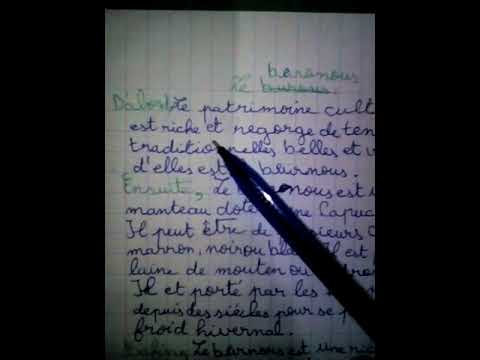 baronous
Le bournous.
D'abord, Le patrimoine cult
est riche et regorge de ten
traditionnelles belles et v
d'elles est bournous.
Ensuite, Le nous est
manteau doté Capuc
Il peut être de sieurs
marron, noir ou bla Il est
laine de mouton ou dro
Il et porté par les
depuis des siècles pour se p
froid hivernal.
Enfin, Le barnous est une ric